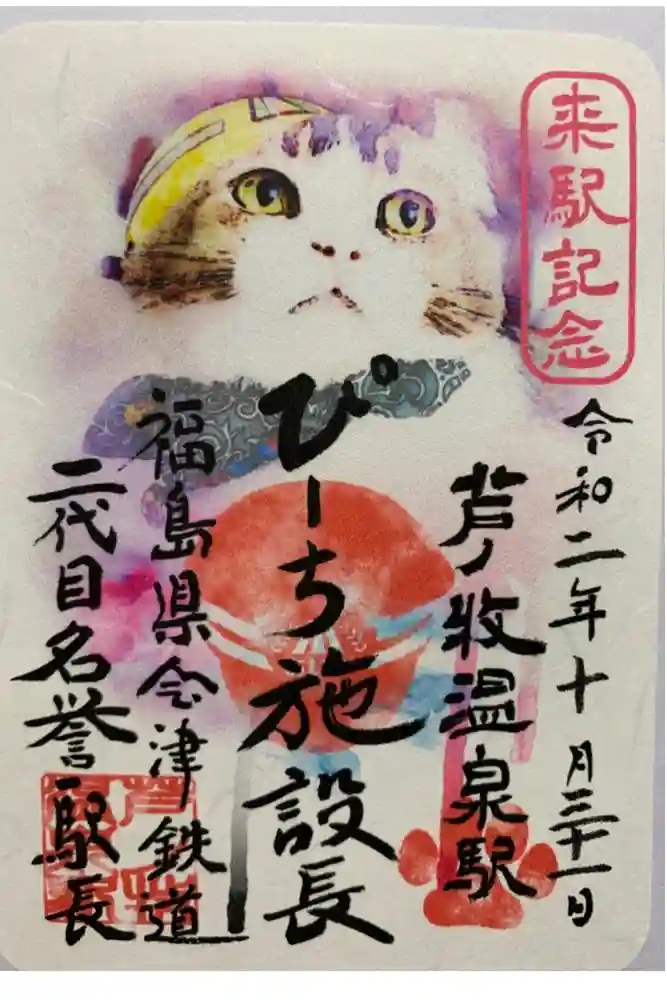 来駅記念
令和二年十月三十一日
芦ノ牧温泉駅
ぴーち施設長
福島県会津鉄道
二代目名誉駅長